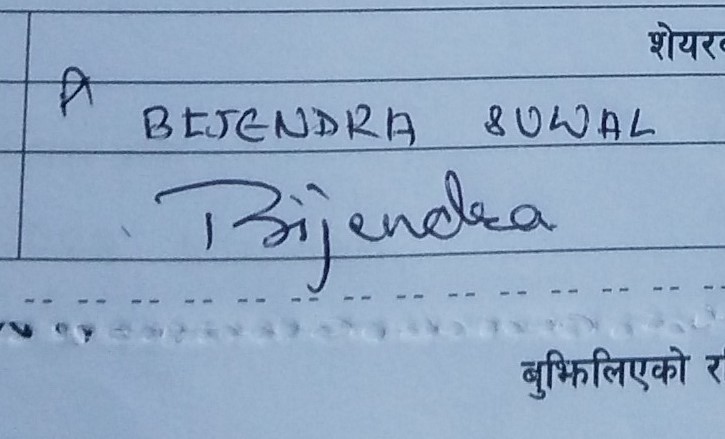 शेयर
A
BIJENDRA SUWAL
Bijendra
बुझिलिएको